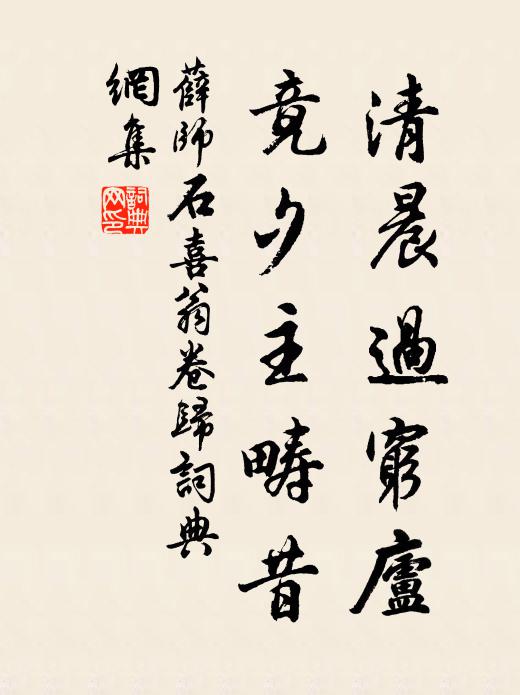 清晨過窮廬
竟夕主疇昔
薛師石喜翁卷歸詞典
網集
詞典網印